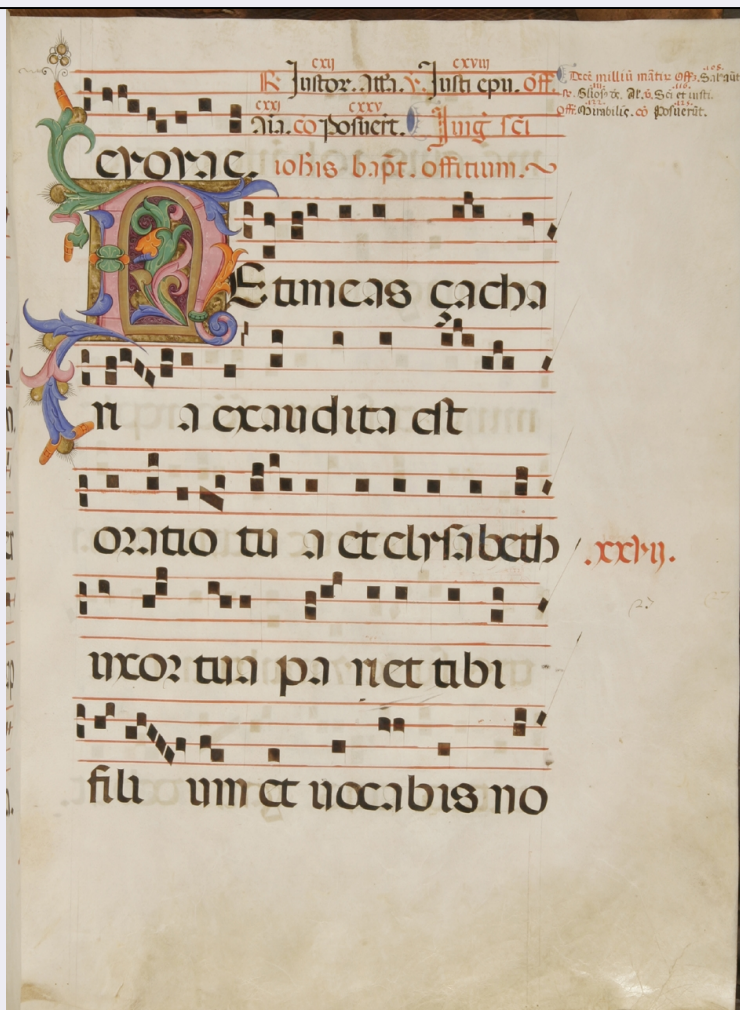 cxij cxviij
R Iustor. aīa. V. Iusti epu. Off.
cxxi cxxv
aīa. co Posuerit. In uiḡ sc̄i
Decē milliū
Gl̓iosꝰ ds̄. Al. v. Sc̄i et iusti.
Off. Mirabilis. cō Posuerūt.
crorae. ioh̄is bap̄t. offitium.
NE timeas çacha
ri a exaudita est
oratio tu a et elysabeth
.xxvij.
uxor tua pa riet tibi
fili um et uocabis no